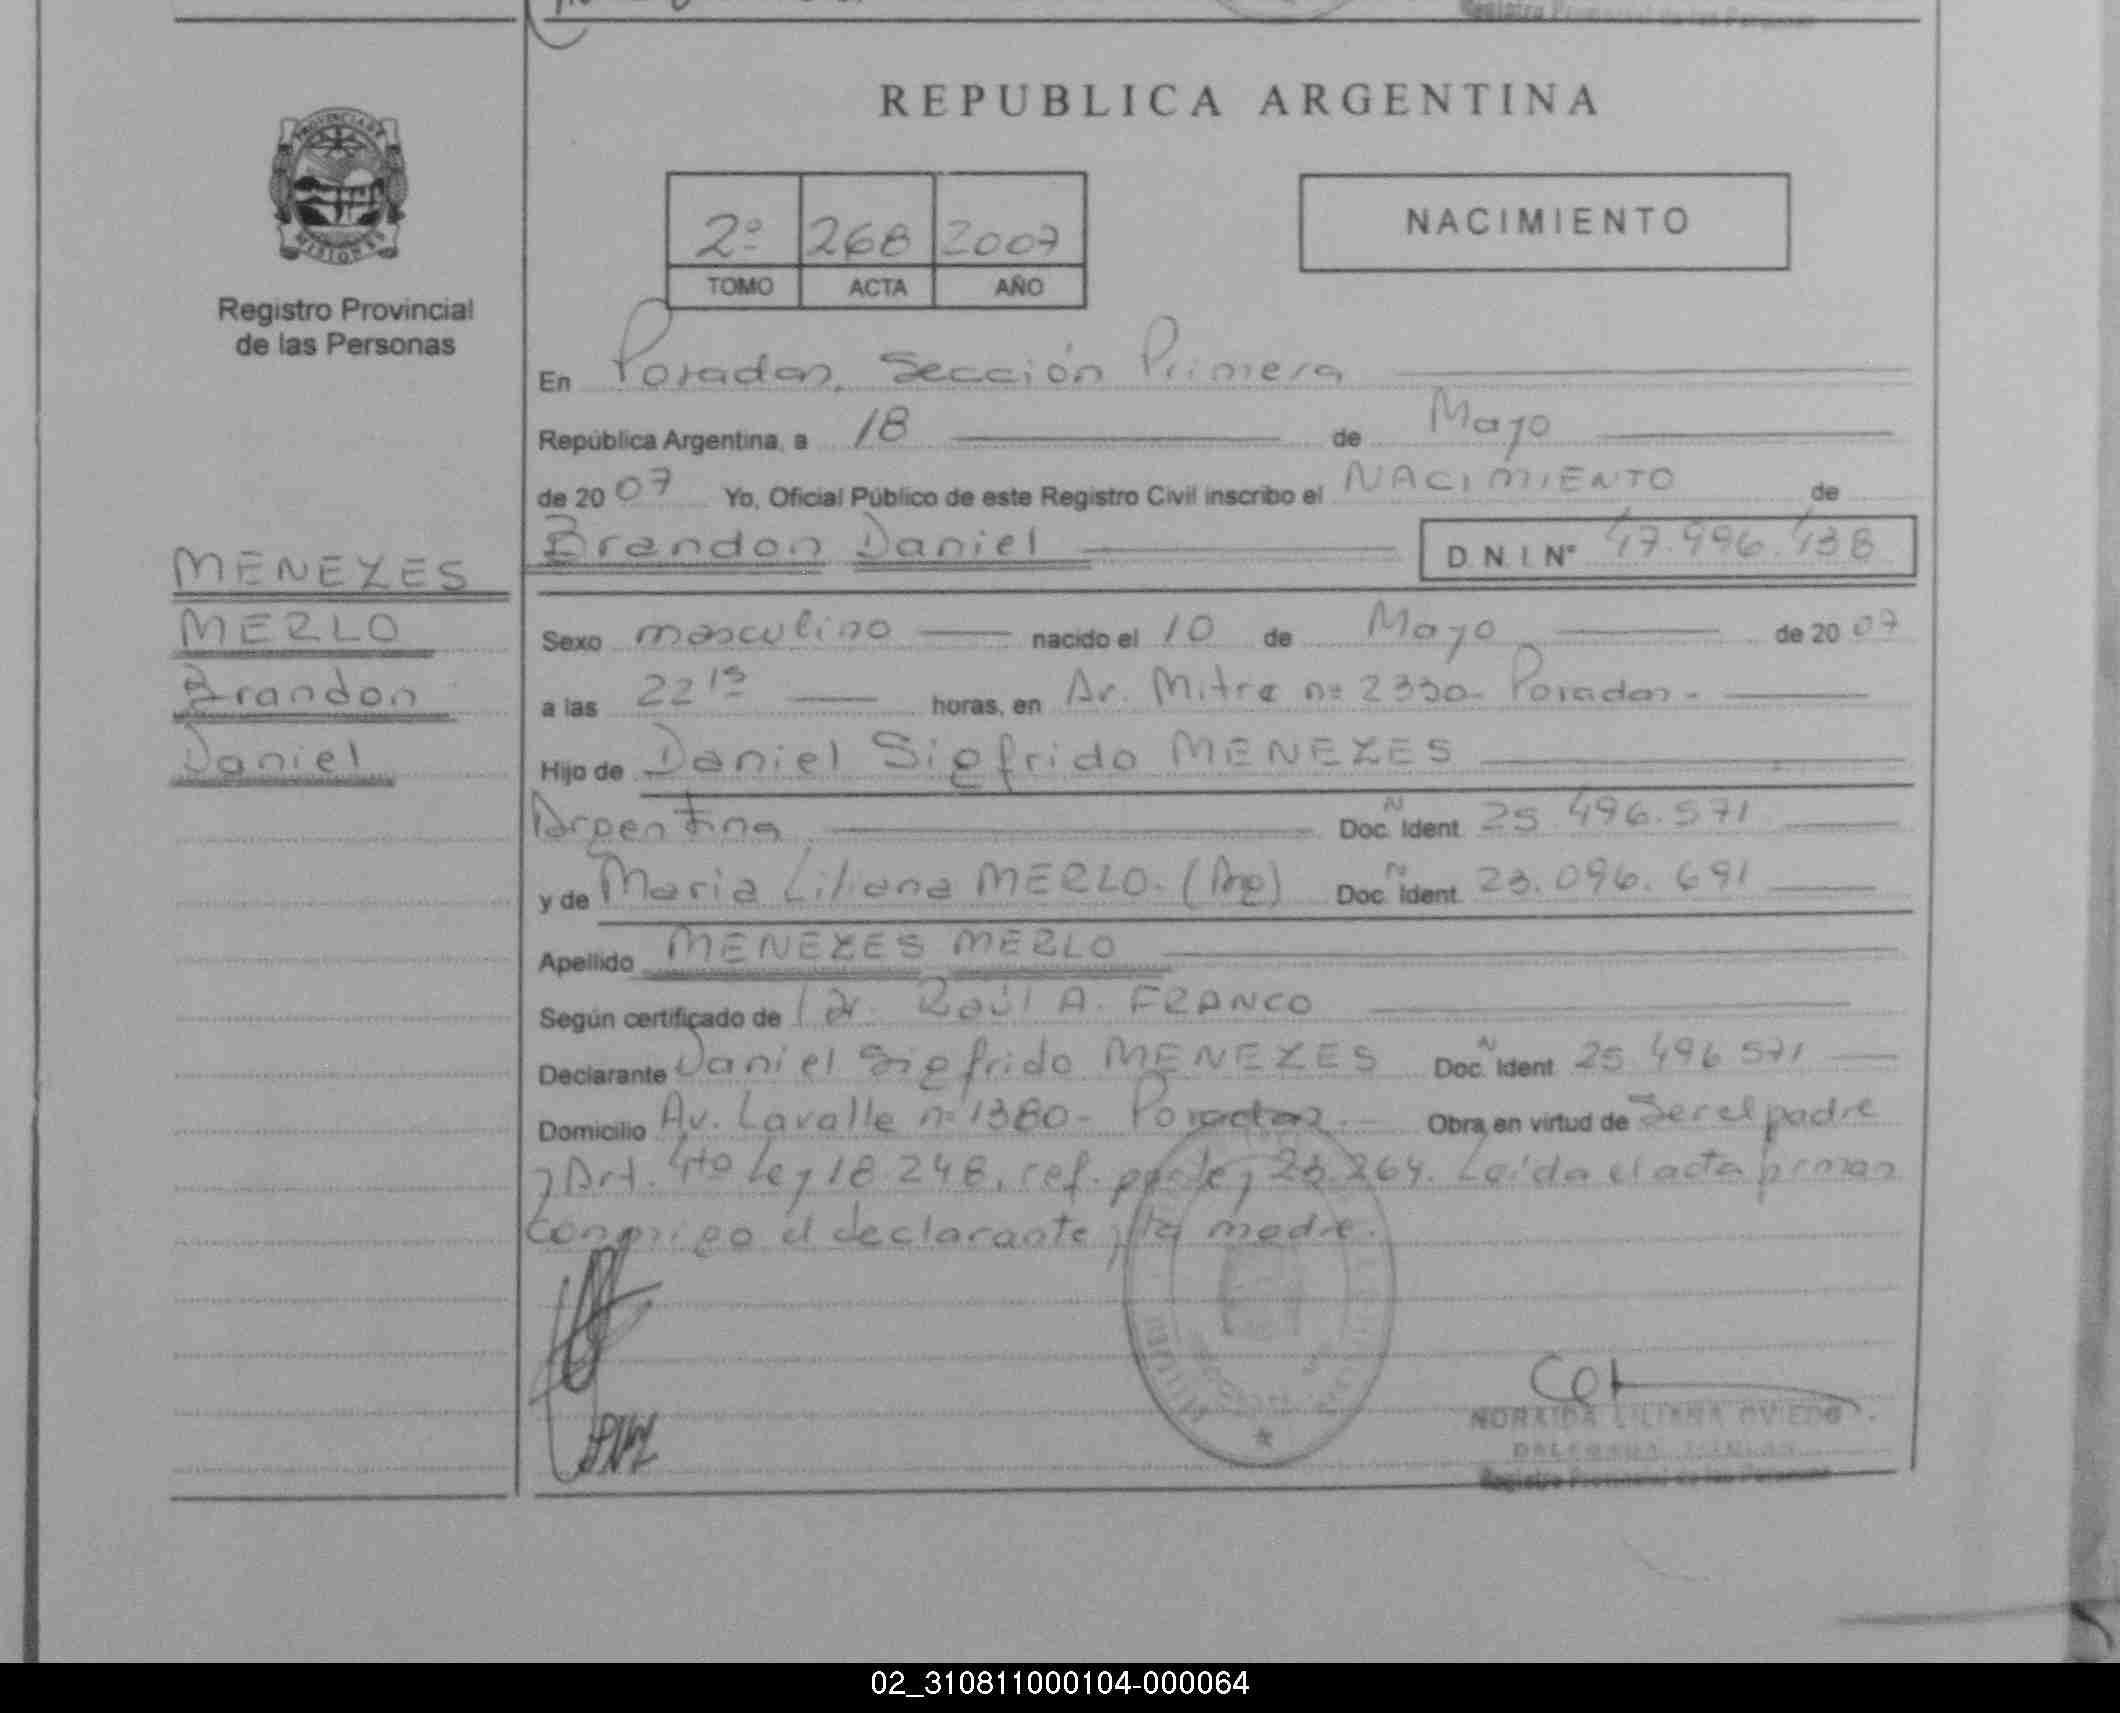 REPUBLICA ARGENTINA
PROVINCIA DE
MISIONES
Registro Provincial
de las Personas
2º 268 2007
TOMO ACTA AÑO
NACIMIENTO
En Posadas, Sección Primera
República Argentina, a 18 de Mayo
de 2007 Yo, Oficial Público de este Registro Civil inscribo el NACIMIENTO de
Brandon Daniel D.N.I. Nº 47.996.438
MENEZES
MERLO
Brandon
Daniel
Sexo masculino nacido el 10 de Mayo de 2007
a las 22 15 horas, en Av. Mitre nº 2330 - Posadas -
Hijo de Daniel Sigfrido MENEZES
Argentina Doc. N Ident. 25.496.571
y de Maria Liliana MERLO. (Arg) Doc. N Ident. 23.096.691
Apellido MENEZES MERLO
Según certificado de Dr. Raúl A. FRANCO
Declarante Daniel Sigfrido MENEZES Doc. N Ident. 25.496.571
Domicilio Av. Lavalle nº 1380 - Posadas. - Obra en virtud de Ser el padre
y Art. 4to Ley 18.248, ref. por ley 23.264. Leída el acta firman
conmigo el declarante y la madre.
NORAIDA LILIANA OVIEDO
Registro Provincial de las Personas
02_310811000104-000064